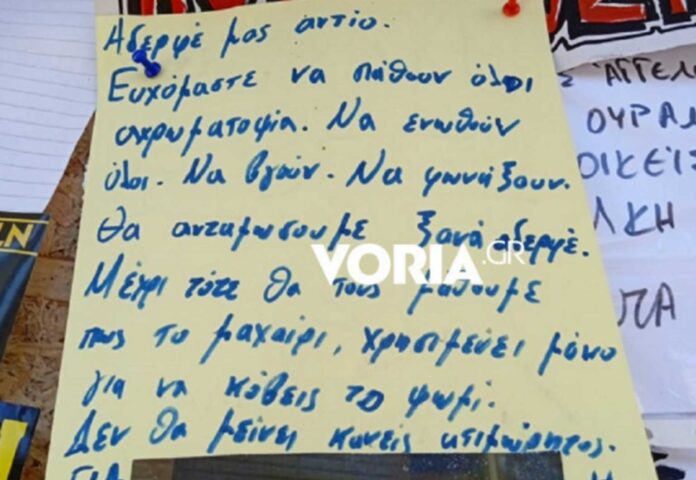 Αδερφέ μας αντίο.
Ευχόμαστε να πάθουν όλοι
αχρωματοψία. Να ενωθούν
όλοι. Να βγούν. Να φωνάξουν.
Θα ανταμωσουμε ξανά αδερφέ.
VORIA.GR
Μέχρι τότε θα τους μάθουμε
πως το μαχαίρι, χρησιμεύει μόνο
για να κόβεις το ψωμί.
Δεν θα μείνει κανείς ατιμώρητος.
ΓΙΑ
ΑΓΓΕΛΟ
ΟΥΡΑ
ΟΙΚΕΙ
ΛΚΗ